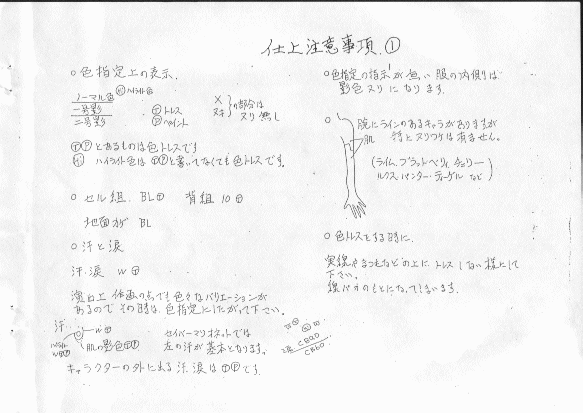 仕上注意事項.①
○色指定上の表示.
ハイライト色
ノーマル色
一号影
二号影
Ⓣトレス
Ⓟペイント
×
ヌキ
の部分は
ヌリ無し
ⓉⓅとあるものは色トレスです
ハイライト色はⓉⓅと書いてなくても色トレスです.
○セル組. BLⓉ 背組 10Ⓣ
地面カゲ BL
○汗と涙
汗.涙 WⓉ
演出上 作画の点でも色々なバリエーションが
あるので その時は、色指定にしたがって下さい。
汗.
WⓉ
ハイライト
肌の影色ⓉⓅ
セイバーマリオネットでは
左の汗が 基本となります。
キャラクターの外に出る 汗.涙はⓉⓅです.
○色指定の指示が無い服の内側は
影色ヌリになります.
○
腕にラインのあるキャラがありますが
肌 特にヌリワケは有ません。
(ライム、ブラットベリィ、チェリー
ルクス、パンター、ティーゲル など)
○色トレスをする時に.
実線やまつ毛などの上に、トレスしない様にして
下さい。
線バカのもとになってしまいます.